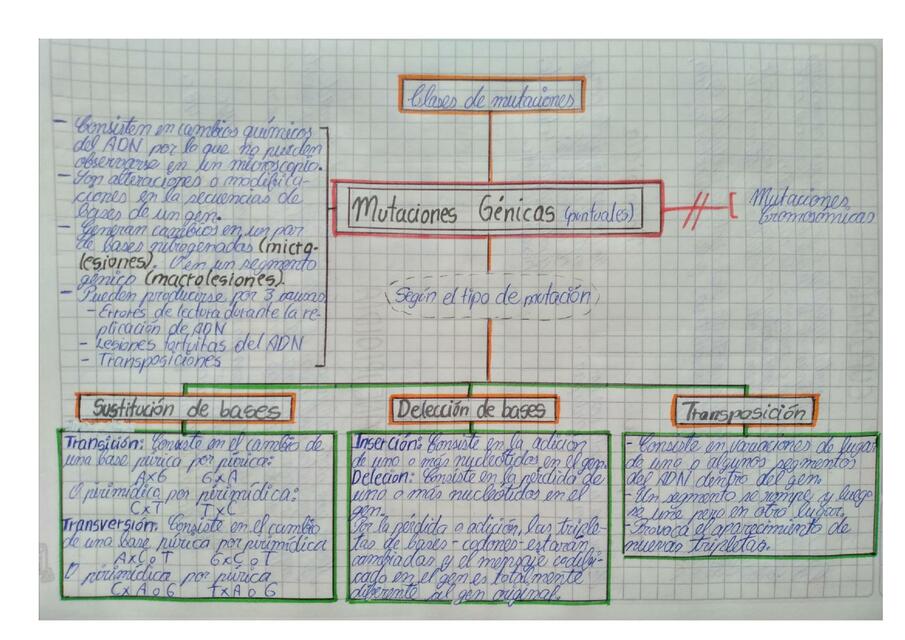 Clases de mutaciones
- Consisten en cambios químicos
del ADN por lo que no pueden
observarse en un microscopio.
- Son alteraciones o modifica-
ciones en la secuencias de
bases de un gen.
- Generan cambios en un par
de bases nitrogenadas (micro-
lesiones). O en un segmento
génico (macrolesiones).
- Pueden producirse por 3
- Errores de lectura durante la re-
plicación de ADN
- Lesiones fortuitas del ADN
- Transposiciones
Mutaciones Génicas (puntuales)
Mutaciones
Cromosómicas
Según el tipo de mutación
Sustitución de bases
Transición: Consiste en el cambio de
una base púrica por púrica:
AxG GxA
O pirimídica por pirimídica:
CxT TxC
Transversión: Consiste en el cambio
de una base púrica por pirimídica
AxC o T GxC o T
O pirimídica por púrica
CxA o G TxA o G
Delección de bases
Inserción: Consiste en la adicion
de uno o más nucleotidos en el gen.
Deleción: Consiste en la pérdida de
uno o más nucleotidos en el
gen.
Por la pérdida o adición, las triple-
tas de bases - codones - estarán
cambiadas y el mensaje codifi-
cado en el gen es totalmente
diferente al gen original.
Transposición
- Consiste en variaciones de lugar
de uno o algunos segmentos
del ADN dentro del gen.
- Un segmento se rompe y luego
se une pero en otro lugar.
- Provoca el aparecimiento de
nuevas tripletas.